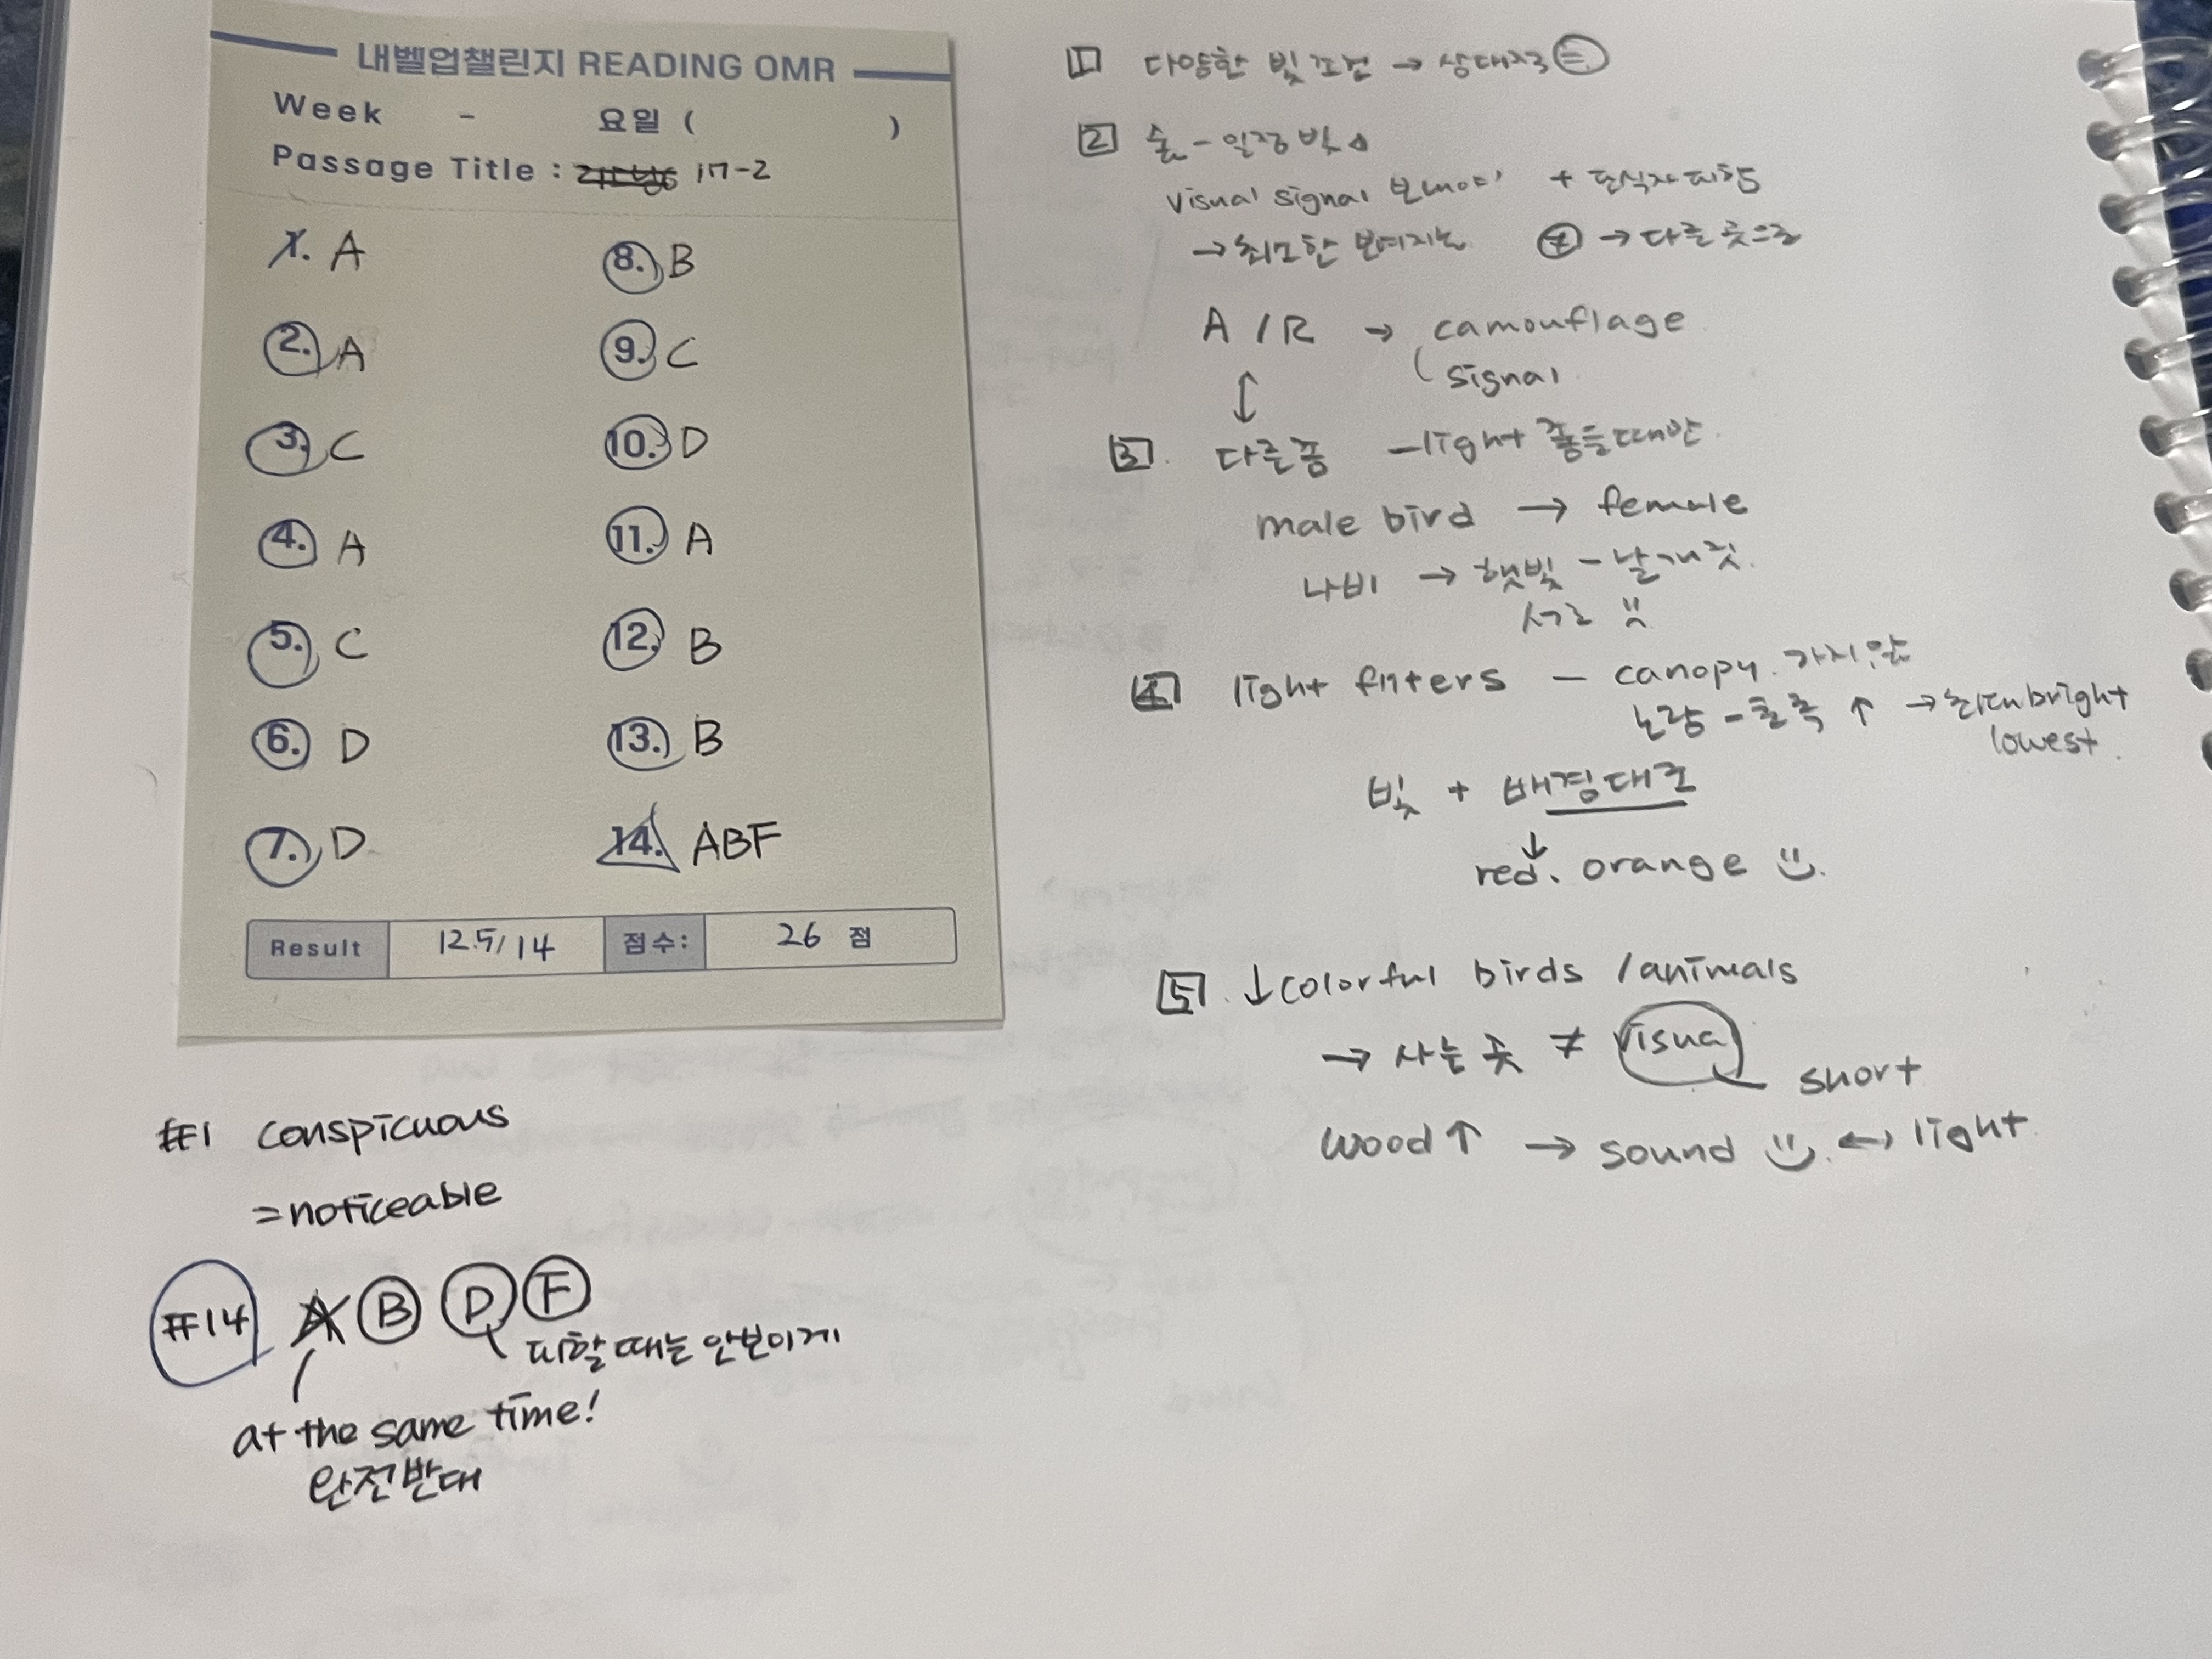 내벨업챌린지 READING OMR
Week - 요일 ( )
Passage Title : 17-2
1. A
2. A
3. C
4. A
5. C
6. D
7. D
8. B
9. C
10. D
11. A
12. B
13. B
14. ABF
Result 12.5/14 점수: 26 점
#1 conspicuous
= noticeable
#14 A B D F
피할 때는 안보이게
at the same time!
완전반대
1 다양한 빛 조건 →
2 숲 - 일정 빛
visual signal 보내야 + 포식자 피하
→ 최소한 보여지는 → 다른 곳으로
A / R → camouflage
signal
↕
3. 다른종 - light 좋을때만.
male bird → female
나비 → 햇빛 - 날개짓.
서로
4 light filters - canopy.
노랑 - 초록 ↑ → bright
lowest.
빛 + 배경대조
↓
red. orange
5. ↓ colorful birds / animals
→ 사는 곳 ≠ visual
short
wood ↑ → sound ↔ light